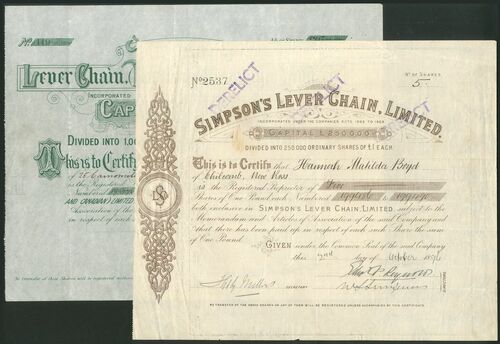 Lever Chain,
INCORPORATED
CAP
DIVIDED INTO 1,00
This is to Certify
is the Registered
Numbered
AND CANADIAN) LIMITED
Association of the
in respect of each
No 2537
No OF SHARES
5
DERELICT
SIMPSON'S LEVER CHAIN, LIMITED,
INCORPORATED UNDER THE COMPANIES ACTS
CAPITAL £250000
DIVIDED INTO 250000 ORDINARY SHARES OF £1 EACH
This is to Certify that Hannah Matilda Boyd
of Chilcomb, New Ross
is the Registered Proprietor of Five
Shares of One Pound each Numbered to
both inclusive in SIMPSON'S LEVER CHAIN, LIMITED, subject to the
Memorandum and Articles of Association of the said Company and
that there has been paid up in respect of each such Share the sum
of One Pound
GIVEN under the Common Seal of the said Company
this 2nd day of October 1896
SECRETARY
DIRECTORS
NO TRANSFER OF THE ABOVE SHARES OR ANY OF THEM WILL BE REGISTERED UNLESS ACCOMPANIED BY THIS CERTIFICATE